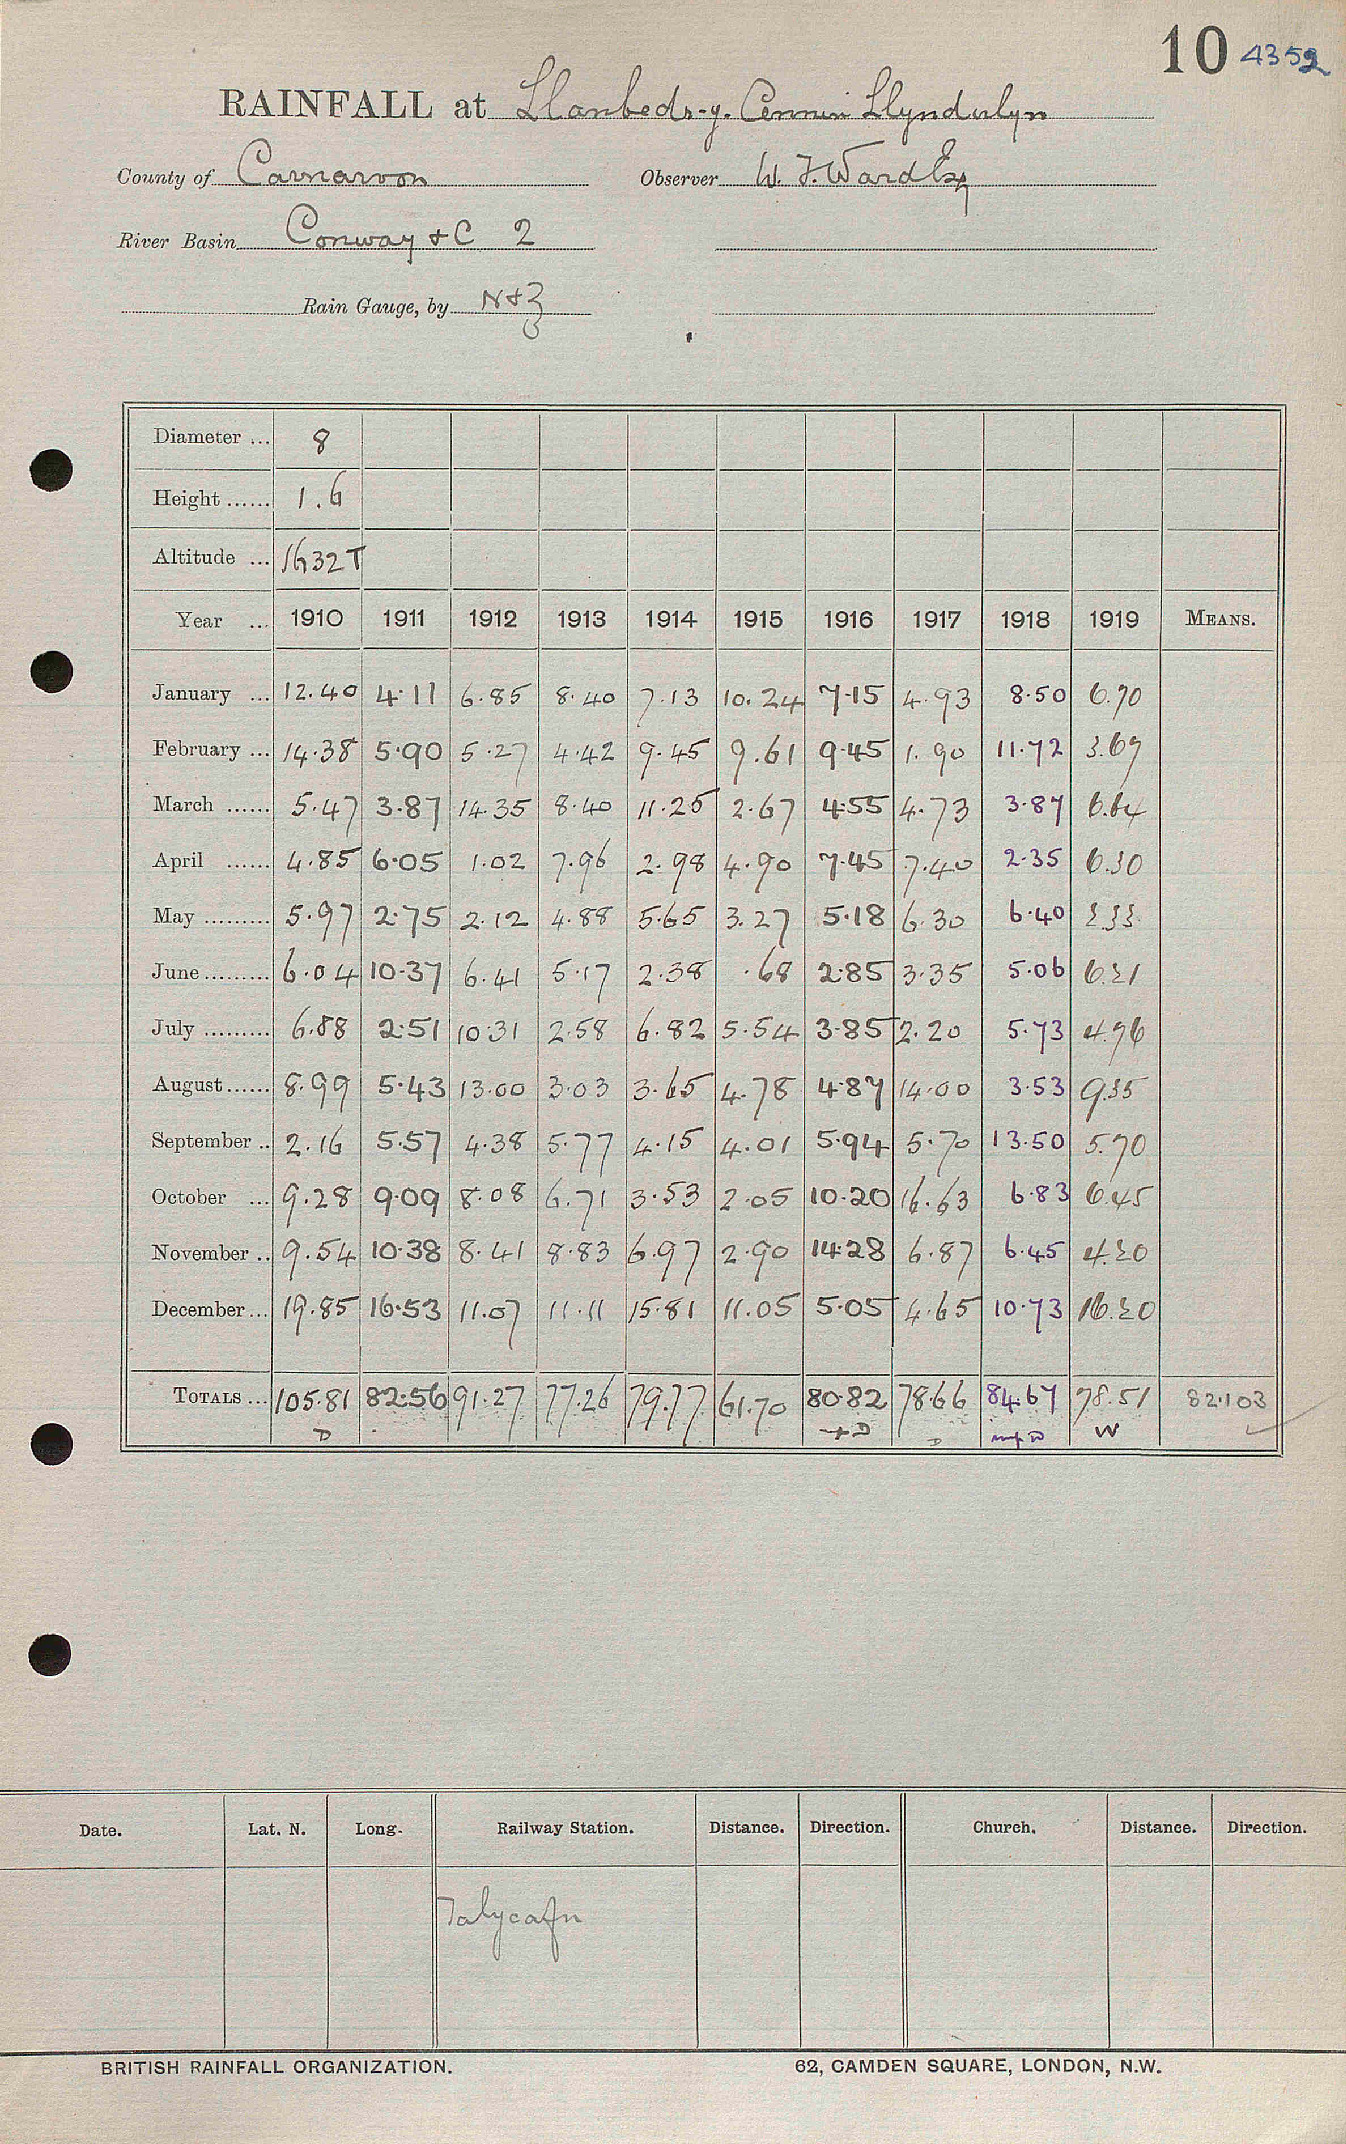 10 4352
RAINFALL at Llanbedr-y-Cennin Llyndulyn
County of Carnarvon Observer W. F. Ward Esq
River Basin Conway & C 2
Rain Gauge, by N & Z
Diameter ... 8
Height ...... 1.6
Altitude ... 1632 T
Year ... 1910 1911 1912 1913 1914 1915 1916 1917 1918 1919 MEANS.
January ... 12.40 4.11 6.85 8.40 7.13 10.24 7.15 4.93 8.50 6.70
February ... 14.38 5.90 5.27 4.42 9.45 9.61 9.45 1.90 11.72 3.67
March ...... 5.47 3.87 14.35 8.40 11.25 2.67 4.55 4.73 3.87 6.64
April ...... 4.85 6.05 1.02 7.96 2.98 4.90 7.45 7.40 2.35 6.30
May ......... 5.97 2.75 2.12 4.88 5.65 3.27 5.18 6.30 6.40 2.33
June ......... 6.04 10.37 6.41 5.17 2.38 .68 2.85 3.35 5.06 6.21
July ......... 6.88 2.51 10.31 2.58 6.82 5.54 3.85 2.20 5.73 4.96
August ...... 8.99 5.43 13.00 3.03 3.65 4.78 4.87 14.00 3.53 9.35
September .. 2.16 5.57 4.38 5.77 4.15 4.01 5.94 5.70 13.50 5.70
October ... 9.28 9.09 8.08 6.71 3.53 2.05 10.20 16.63 6.83 6.45
November .. 9.54 10.38 8.41 8.83 6.97 2.90 14.28 6.87 6.45 4.20
December ... 19.85 16.53 11.07 11.11 15.81 11.05 5.05 4.65 10.73 16.20
TOTALS ... 105.81 82.56 91.27 77.26 79.77 61.70 80.82 78.66 84.67 78.51 82.103
D + D D W
Date. Lat. N. Long. Railway Station. Distance. Direction. Church. Distance. Direction.
Talycafn
BRITISH RAINFALL ORGANIZATION. 62, CAMDEN SQUARE, LONDON, N.W.